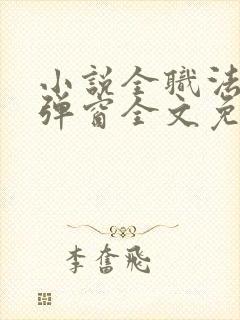 小説全職法
弹窗全文免
李奮飛